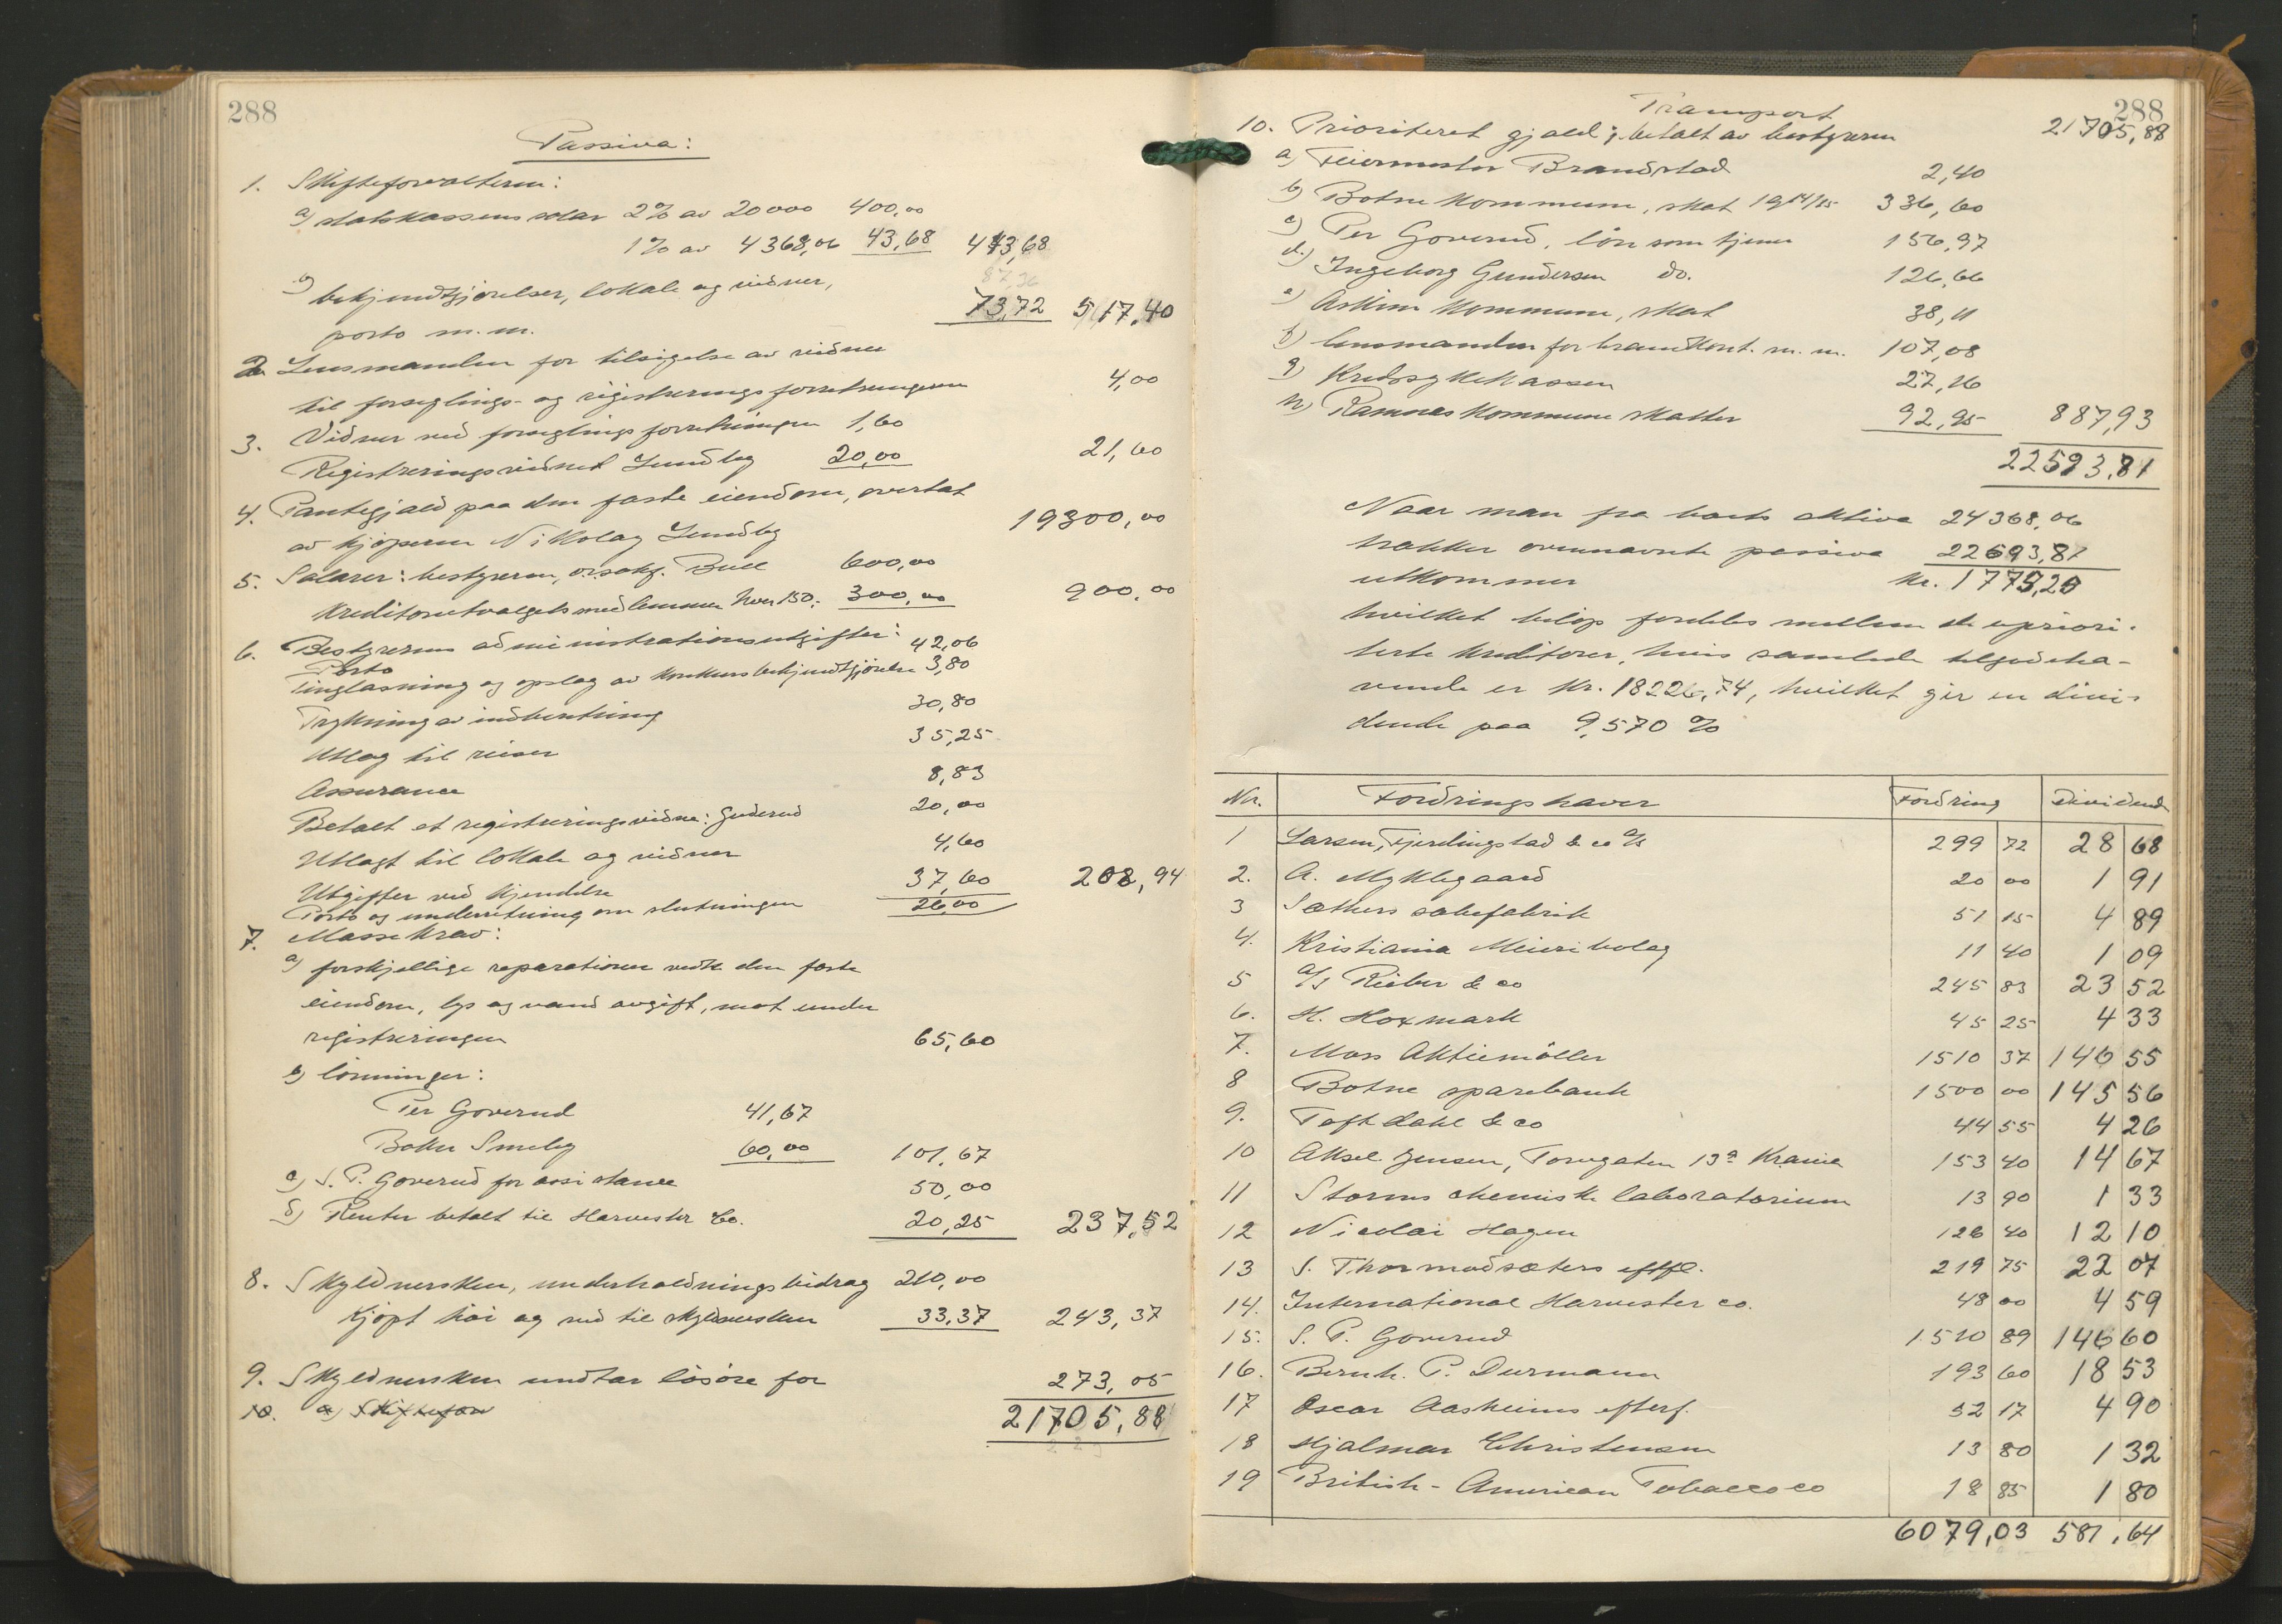 288
Passiva:
1. Skifteforvalteren:
a) statskassens solær 2% av 20000 400,00
1% av 4368,06 43,68 443,68
87,36
b) bekjendtgjørelser, lokale og vidner,
porto m.m. 73,72 517,40
2. Lensmanden for tilsigelse av vidner
til forseglings- og registreringsforretningene 4,00
3. Vidner ved forseglingsforretningen 1,60
Registreringsvidnet Lundby 20,00 21,60
4. Pantegjæld paa den faste eiendom, overtat
av kjøperen Nikolay Lundby 19300,00
5. Salærer: bestyreren, o.r.sakf. Bull 600,00
Kreditorutvalgets medlemmer hver 150,- 300,00 900,00
6. Bestyrerens administrationsutgifter:
Porto 42,06
Tinglæsning og opslag av konkursbekjendtgjørelse 3,80
Trykning av indberetning 30,80
Utlæg til reiser 35,25
Assurance 8,83
Betalt et registreringsvidne: Guderud 20,00
Utlagt til lokale og vidner 4,60
Utgifter ved kjendelse 37,60 208,94
Porto og underretning om slutningen 26,00
7. Massekrav:
a) forskjellige reparationer vedk den faste
eiendom, lys og vand avgift, mat under
registreringen 65,60
b) lønninger:
Per Goverud 41,67
Baker Smeby 60,00 101,67
c) S. P. Goverud for assistance 50,00
d) Renter betalt til Harvester Co. 20,25 237,52
8. Skyldnersken, underholdningsbidrag 210,00
Kjøpt høi og ved til skyldnersken 33,37 243,37
9. Skyldnersken undtar løsøre for 273,05
10. a) Skiftefor 21705,88
288
Transport 21705,88
10. Prioriteret gjæld; betalt av bestyreren
a) Feiermester Brandstad 2,40
b) Botne kommune, skat 1914/15 336,60
c) Per Goverud, løn som tjener 156,97
d.) Ingeborg Gundersen do. 126,66
e) Askim kommune, skat 38,11
f) lensmanden for brandkont. m.m. 107,08
g) Kredssykekassen 27,16
h) Ramnes kommune skatter 92,95 887,93
22593,81
Naar man fra boets aktiva 24368,06
trækker ovennævnte passiva 22693,81
utkommer kr. 1775,25
hvilket beløp fordeles mellem de upriori-
terte kreditorer, hvis samlede tilgodeha-
vende er kr. 18226,74, hvilket gir en divi-
dende paa 9,570 %
Nr. Fordringshaver Fordring Dividende
1 Larsen, Fjerdingstad & co a/s 299 72 28 68
2. A. Myklegaard 20 00 1 91
3 Sæthers sæbefabrik 51 15 4 89
4. Kristiania Meieribolag 11 40 1 09
5 a/s Rieber & co 245 83 23 52
6. H. Hoxmark 45 25 4 33
7. Moss Aktiemøller 1510 37 146 55
8 Botne sparebank 1500 00 145 56
9. Toft dahl & co 44 55 4 26
10 Aksel Jensen, Torvgaten 13a Krania 153 40 14 67
11 Storms chemiske laboratorium 13 90 1 33
12 Nicolai Hagen 126 40 12 10
13 S. Thormodsæters eftfl. 219 75 22 07
14. International Harvester co. 48 00 4 59
15. S. P. Goverud 1510 89 146 60
16. Bernh. P. Durmann 193 60 18 53
17 Oscar Aasheims efterf. 52 17 4 90
18 Hjalmar Christensen 13 80 1 32
19 British-American Tobacco co 18 85 1 80
6079,03 581,64